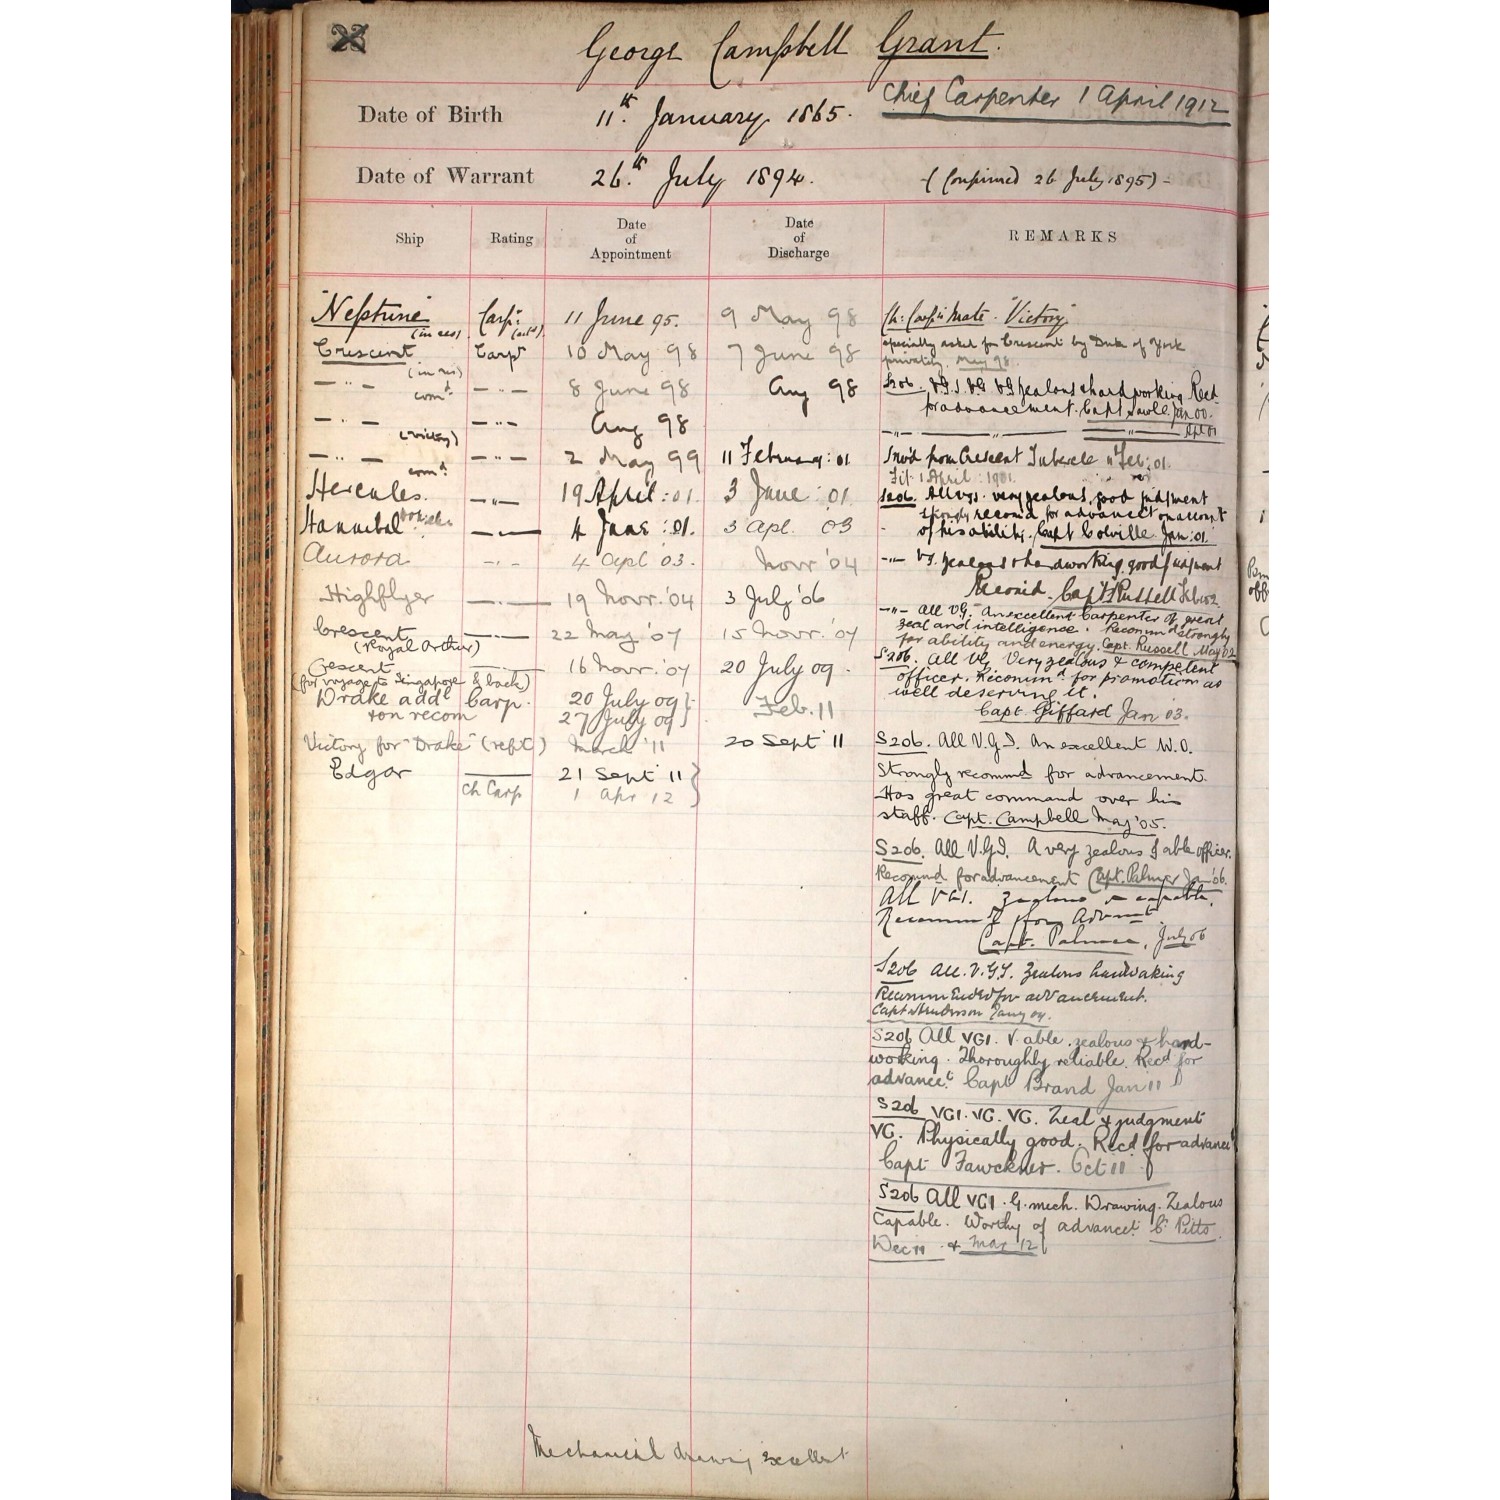 George Campbell Grant.
Chief Carpenter 1 April 1912
Date of Birth 11th. January 1865.
Date of Warrant 26th. July 1894. (Confirmed 26 July 1895)
Ship Rating Date of Appointment Date of Discharge REMARKS
"Neptune" (in res) Carpr. 11 June 95. 9 May 98 Ch: Carp's Mate. "Victory"
Crescent (in res) Carpr 10 May 98 7 June 98 specially asked for Crescent by Duke of York
privately. May 98.
—"— comd. —"— 8 June 98 Aug 98 S206. VG I VG VG Zealous & hardworking Recd
for advancement. Capt Jan 00.
—"— (Victory) —"— Aug 98 —"— —"— Apl 01
—"— comd. —"— 2 May 99 11 February: 01 Invd from Crescent Tubercle 11 Feb: 01.
Fit 1 April 1901.
Hercules. —"— 19 April: 01. 3 June: 01 S206. All vgs. very zealous, good judgment
strongly recomd for advancet on account
Hannibal —"— 4 June: 01. 3 Apl. 03 of his ability. Capt Colville. Jan: 01.
Aurora —"— 4 Apl '03. Novr '04 —"— VG. zealous & hardworking, good judgment
Recomd. Capt Russell Feb 02.
Highflyer —"— 19 Novr. '04 3 July '06 —"— All VG. An excellent Carpenter of great
zeal and intelligence. Recommd strongly
Crescent (Royal Arthur) —"— 22 May '07 15 Novr. '07 for ability and energy. Capt. Russell May 02
Crescent —— 16 Novr. '07 20 July 09. S206. All VG. Very zealous & competent
(for voyage to Singapore & back) officer. Recommd for promotion as
Drake addl Carp. 20 July 09} Feb. 11 well deserving it.
& on recom 27 July 09} Capt. Giffard Jan 03.
Victory for "Drake" (refit) March '11 20 Sept '11 S206. All V.G.I. An excellent W.O.
Edgar —— 21 Sept '11} Strongly recommd for advancement.
Ch Carp 1 Apr 12} Has great command over his
staff. Capt. Campbell May '05.
S206. All V.G.I. A very zealous & able officer.
Recommd for advancement Capt. Palmer Jan '06.
All VGI. Zealous & capable.
Recommd for Advmt.
Capt. Palmer, July 06
S206 All. V.G.I. Zealous hardworking
Recommended for advancement.
S206 All VGI. V. able, zealous & hard-
working. Thoroughly reliable. Recd for
advancet. Capt Brand Jan 11
S206 VGI. VG. VG. Zeal & judgment
VG. Physically good. Recd for advancet
Capt Fawckner. Oct 11
S206 All VGI. G. mech. Drawing. Zealous
Capable. Worthy of advancet. C. Pitts
Dec 11 & Mar '12
Mechanical drawing excellent